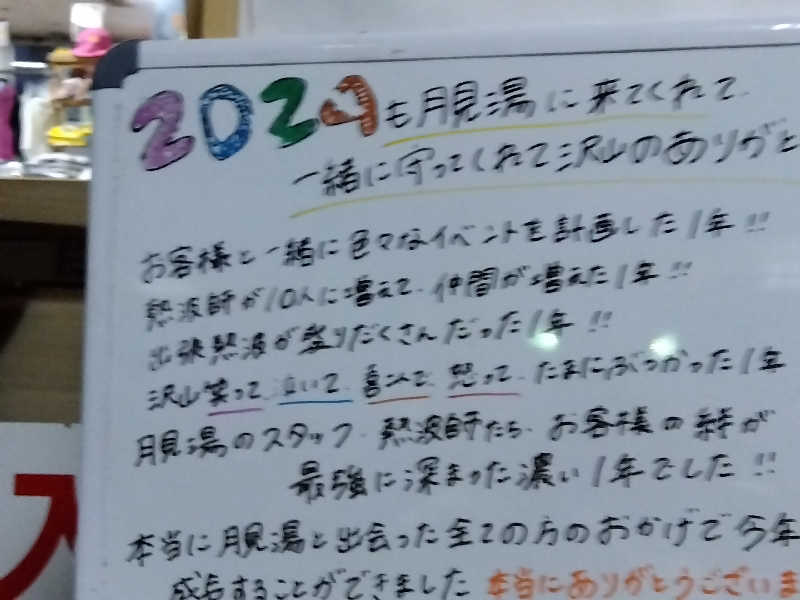 2024も月見湯に来てくれて、
一緒に守ってくれて沢山のありがと
お客様と一緒に色々なイベントを計画した1年!!
熱波師が10人に増えて、仲間が増えた1年!!
出張熱波が盛りだくさんだった1年!!
沢山笑って、泣いて、喜んで、怒って、たまにぶつかった1年
月見湯のスタッフ、熱波師たち、お客様の絆が
最強に深まった濃い1年でした!!
本当に月見湯と出会った全ての方のおかげで今年
成長することができました 本当にありがとうございま